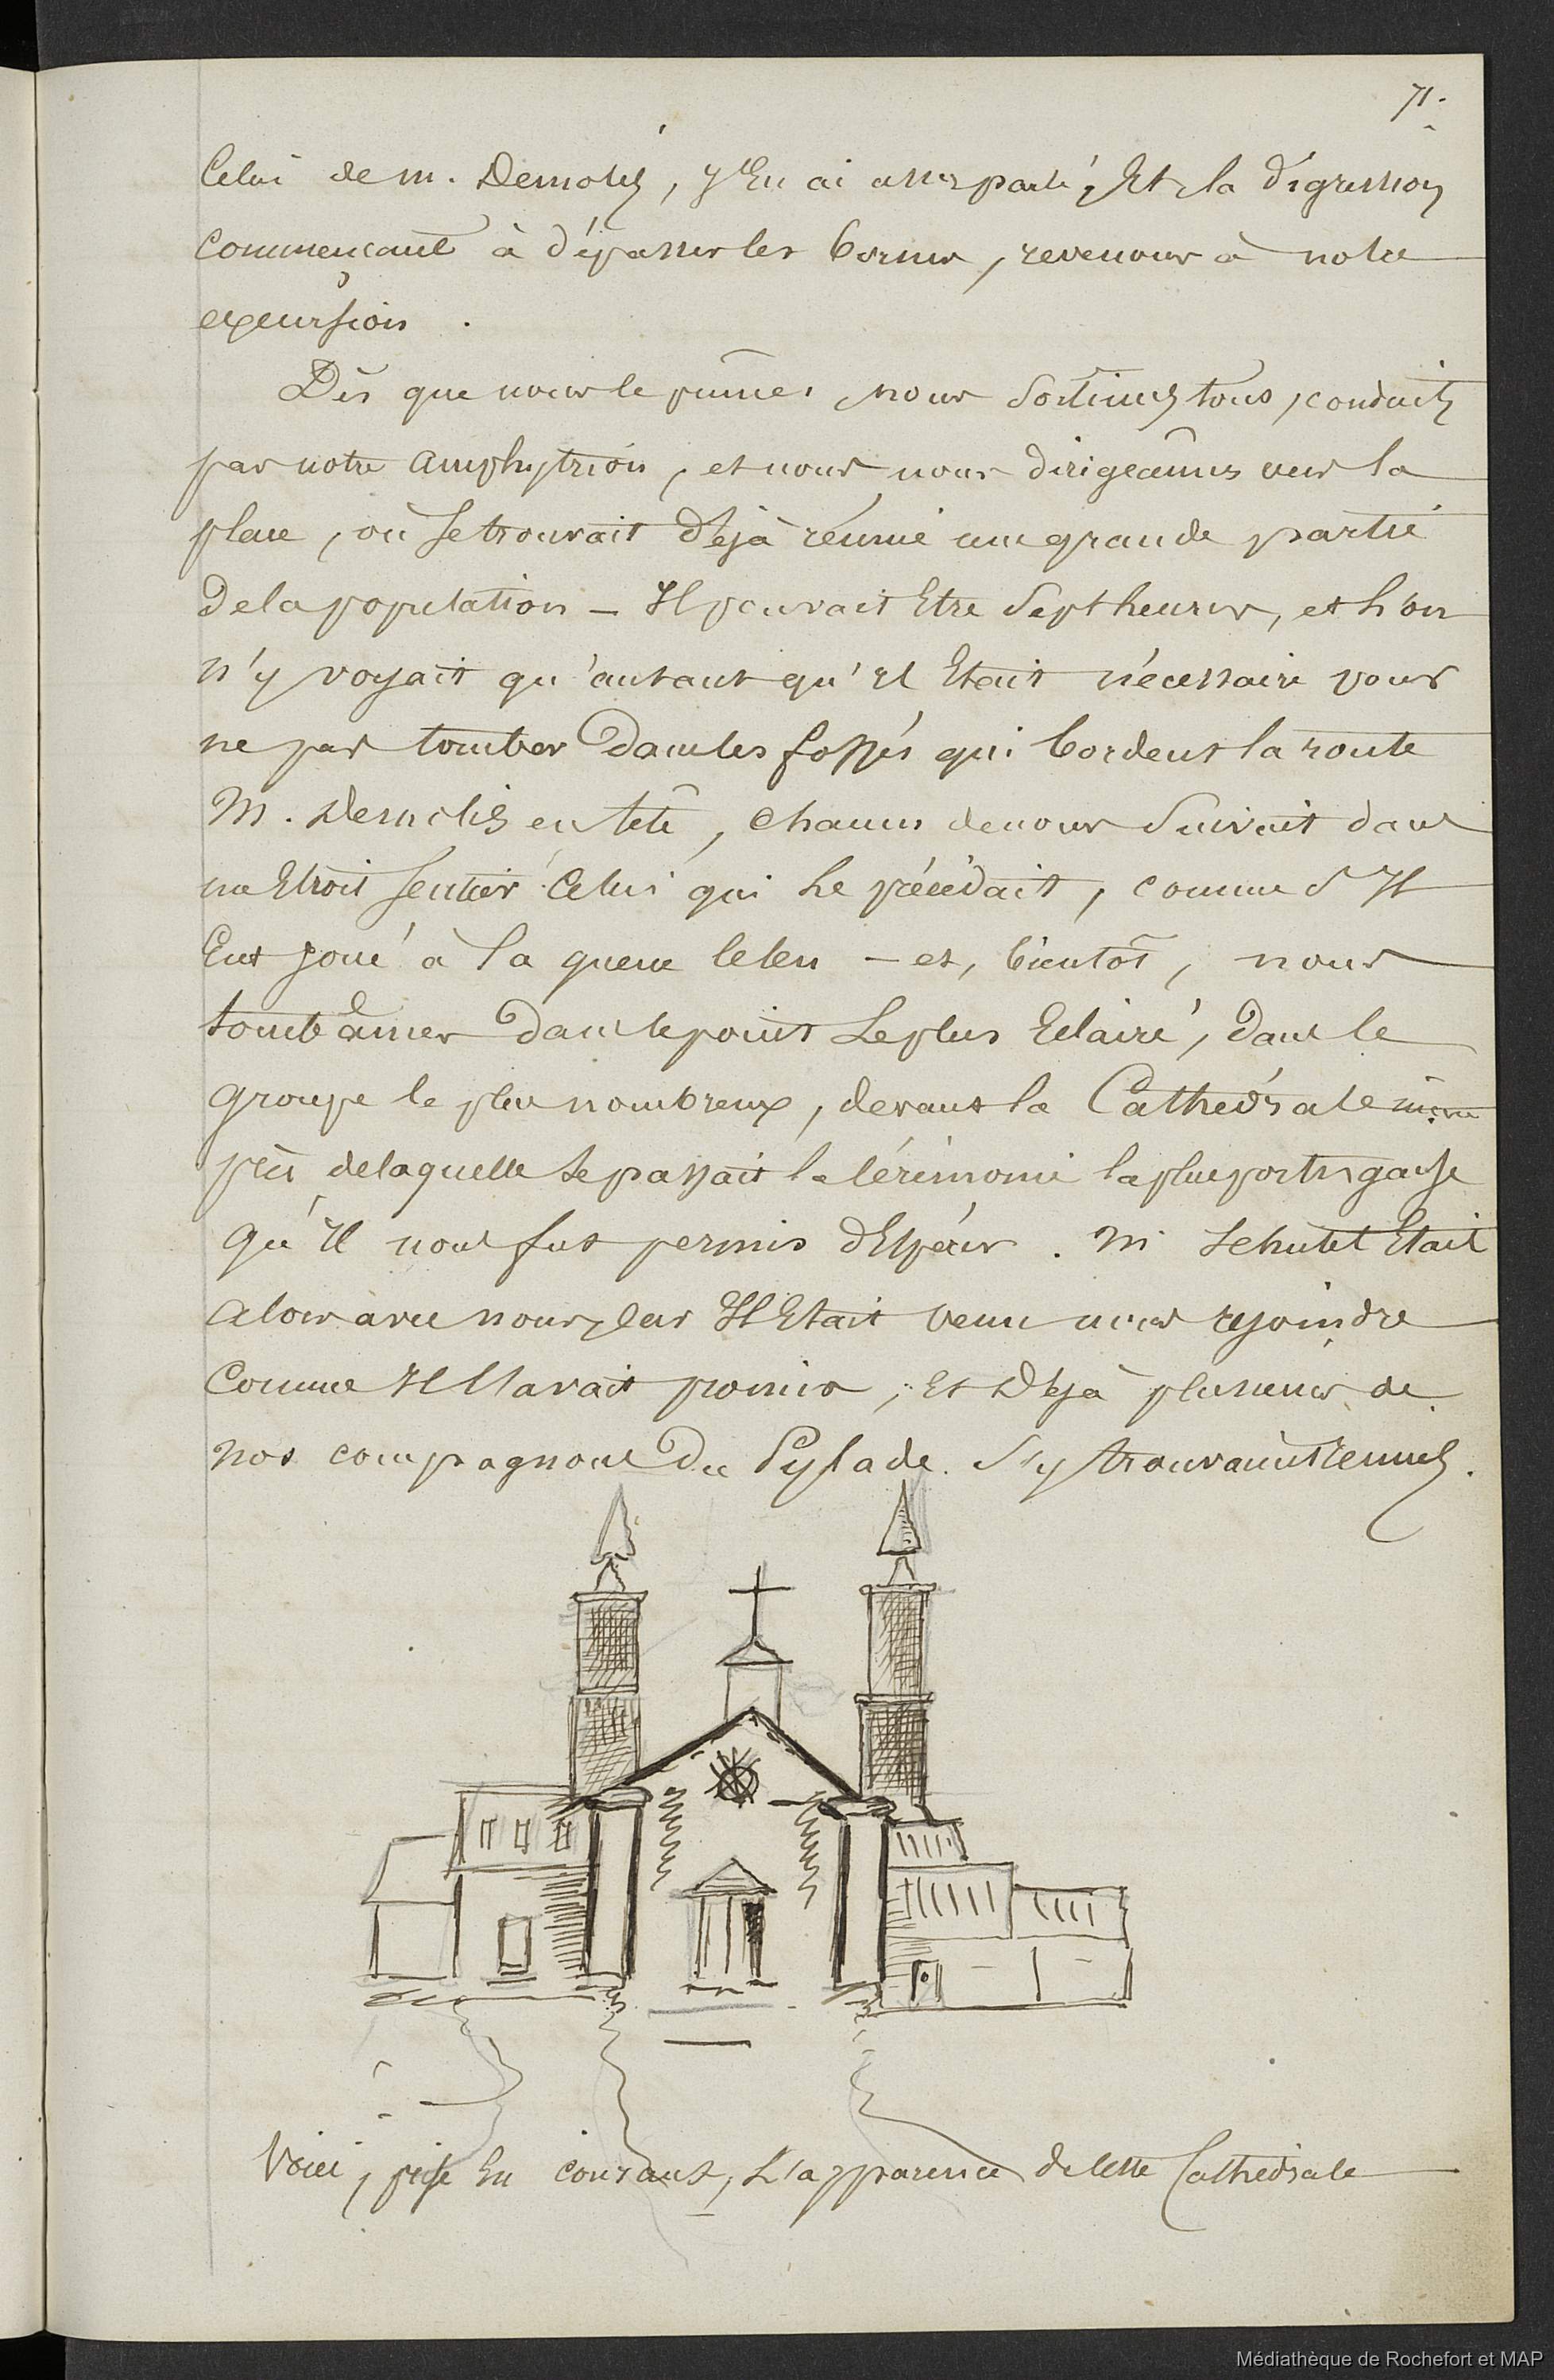 71.
Celui de m. Demolis, j'En ai assez parlé, Et la digression
commençant à dépasser les bornes, revenons à notre
excursion.
Dès que nous le pûmes, nous sortîmes tous, conduits
par notre amphytrion, et nous nous dirigeâmes vers la
place, où se trouvait déjà réunie une grande partie
de la population — Il pouvait Etre sept heures, et l'on
n'y voyait qu'autant qu'il Etait nécessaire pour
ne pas tomber dans les fossés qui bordent la route
M. Demolis en tête, chacun de nous suivait dans
un Etroit sentier celui qui le précédait, comme s'Il
Eut joué à la queue leleu — et, bientôt, nous
tombâmes dans le point le plus Eclairé, dans le
groupe le plus nombreux, devant la Cathédrale même
près de laquelle se passait la cérémonie la plus portugaise
qu'Il nous fut permis d'Espérer. M. Schutet Etait
alors avec nous, car Il Etait venu nous rejoindre
comme Il l'avait promis, Et Déjà plusieurs de
nos compagnons du Pylade s'y trouvaient réunis.
Voici, prise En courant, L'apparence de cette Cathédrale
Médiathèque de Rochefort et MAP